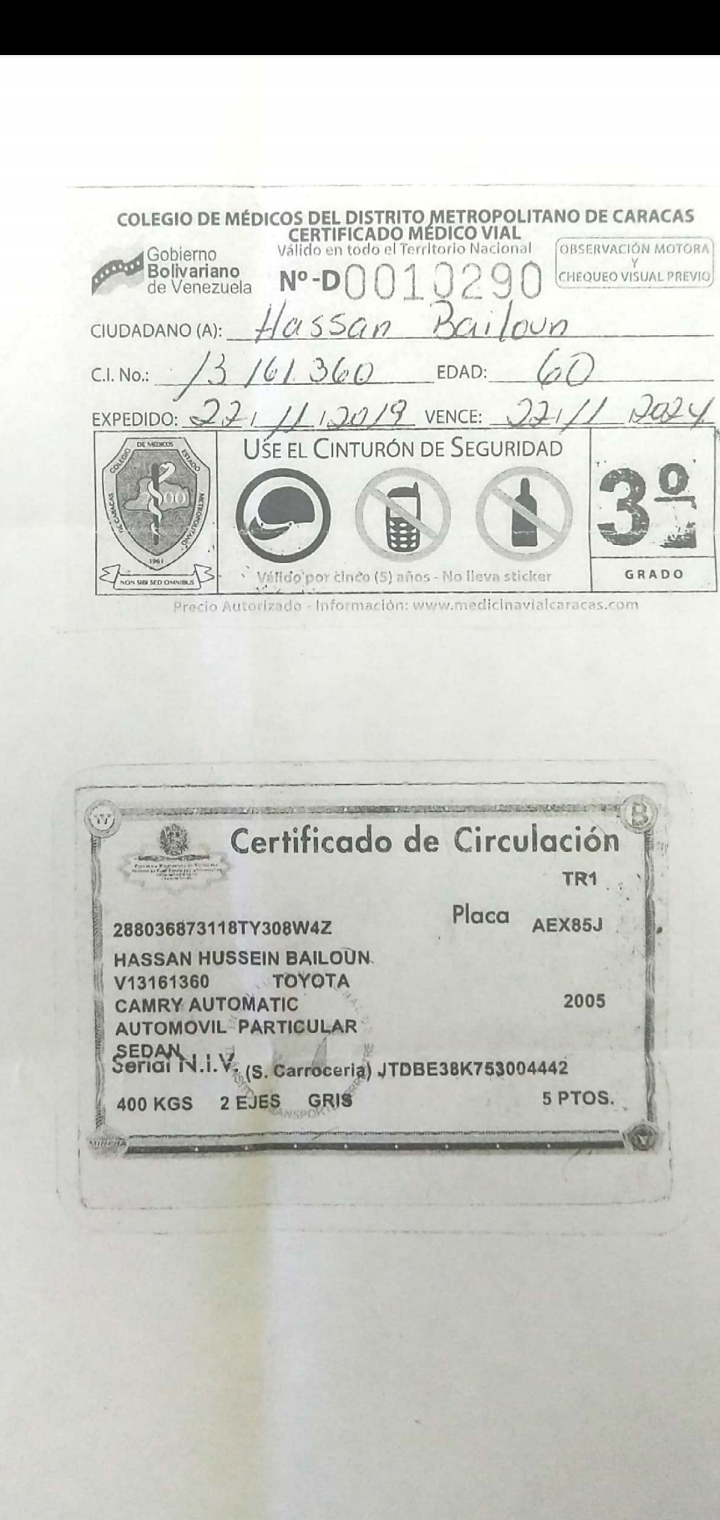 COLEGIO DE MÉDICOS DEL DISTRITO METROPOLITANO DE CARACAS
CERTIFICADO MÉDICO VIAL
Válido en todo el Territorio Nacional
Gobierno
Bolivariano
de Venezuela
Nº-D0010290
OBSERVACIÓN MOTORA
Y
CHEQUEO VISUAL PREVIO
CIUDADANO (A): Hassan Bailoun
C.I. No.: 13161360 EDAD: 60
EXPEDIDO: 22/11/2019 VENCE: 22/11 2024
USE EL CINTURÓN DE SEGURIDAD
COLEGIO DE MÉDICOS ESTADO
METROPOLITANO DE CARACAS
1961
NON SIBI SED OMNIBUS
3º
GRADO
Válido por cinco (5) años - No lleva sticker
Precio Autorizado - Información: www.medicinavialcaracas.com
Certificado de Circulación
TR1
288036873118TY308W4Z Placa AEX85J
HASSAN HUSSEIN BAILOUN
V13161360 TOYOTA
CAMRY AUTOMATIC 2005
AUTOMOVIL PARTICULAR
SEDAN
Serial N.I.V. (S. Carroceria) JTDBE38K753004442
400 KGS 2 EJES GRIS 5 PTOS.